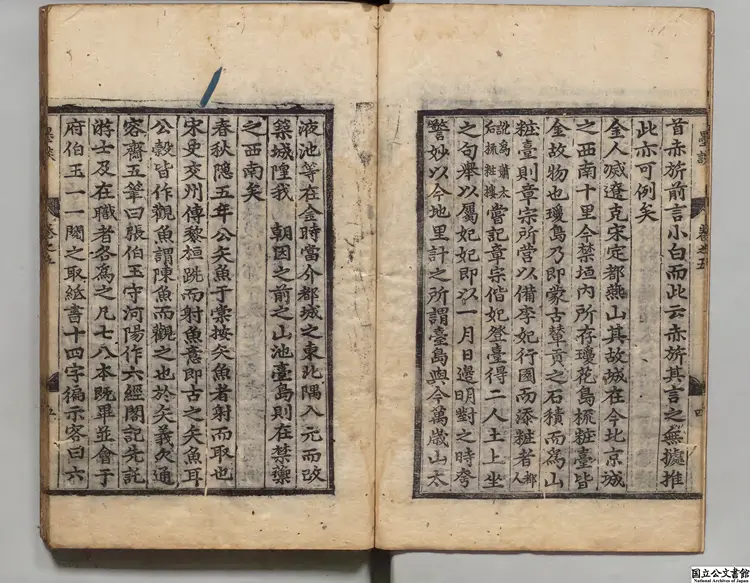 墨談 卷之五 四
首赤旂前言小白而此云赤旂其言之無據推
此亦可例矣
金人滅遼克宋定都燕山其故城在今北京城
之西南十里今禁垣内所存瓊花島梳粧臺皆
金故物也瓊島乃即蒙古輦貢之石積而爲山
粧臺則章宗所營以備李妃行園而添粧者都人
訛爲蕭太后梳粧樓嘗記章宗偕妃登臺得二人土上坐
之句舉以屬妃妃即以一月日邊明對之時夸
警妙以今地里計之所謂臺島與今萬歲山太
液池等在金時當介都城之東北隅入元而改
築城隍我 朝因之前之山池臺島則在禁籞
之西南矣
春秋隱五年公矢魚于棠按矢魚者射而取也
宋史交州傳黎桓跣而射魚意即古之矢魚耳
公穀皆作觀魚謂陳魚而觀之也於矢義欠通
容齋五筆曰張伯玉守河陽作六經閣記先託
游士及在職者各爲之凡七八本既畢並會于
府伯玉一一閱之取紙書十四字徧示客曰六
墨談 卷之五 五
国立公文書館
National Archives of Japan